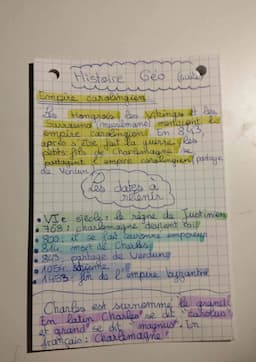 Histoire Géo (suite)
Empire carolingien
Les Hongrois les Vikings et les
Sarrasins (musulmans) menacent l'
empire carolingien. En 843,
après s'être fait la guerre, les
petits fils de Charlemagne se
partagent l'empire carolingien (partage
de Verdun)
Les dates à
retenir
• VIe siècle : le règne de Justinien
• 768 : charlemagne devient roi
• 800 : il se fait couronné empereur
• 814 : mort de Charles
• 843 : partage de Verdun
• 1054 : schisme
• 1453 : fin de l'empire byzantin
Charles est surnommé le grand
En latin Charles se dit "carolus"
et grand se dit "magnus". En
français : Charlemagne